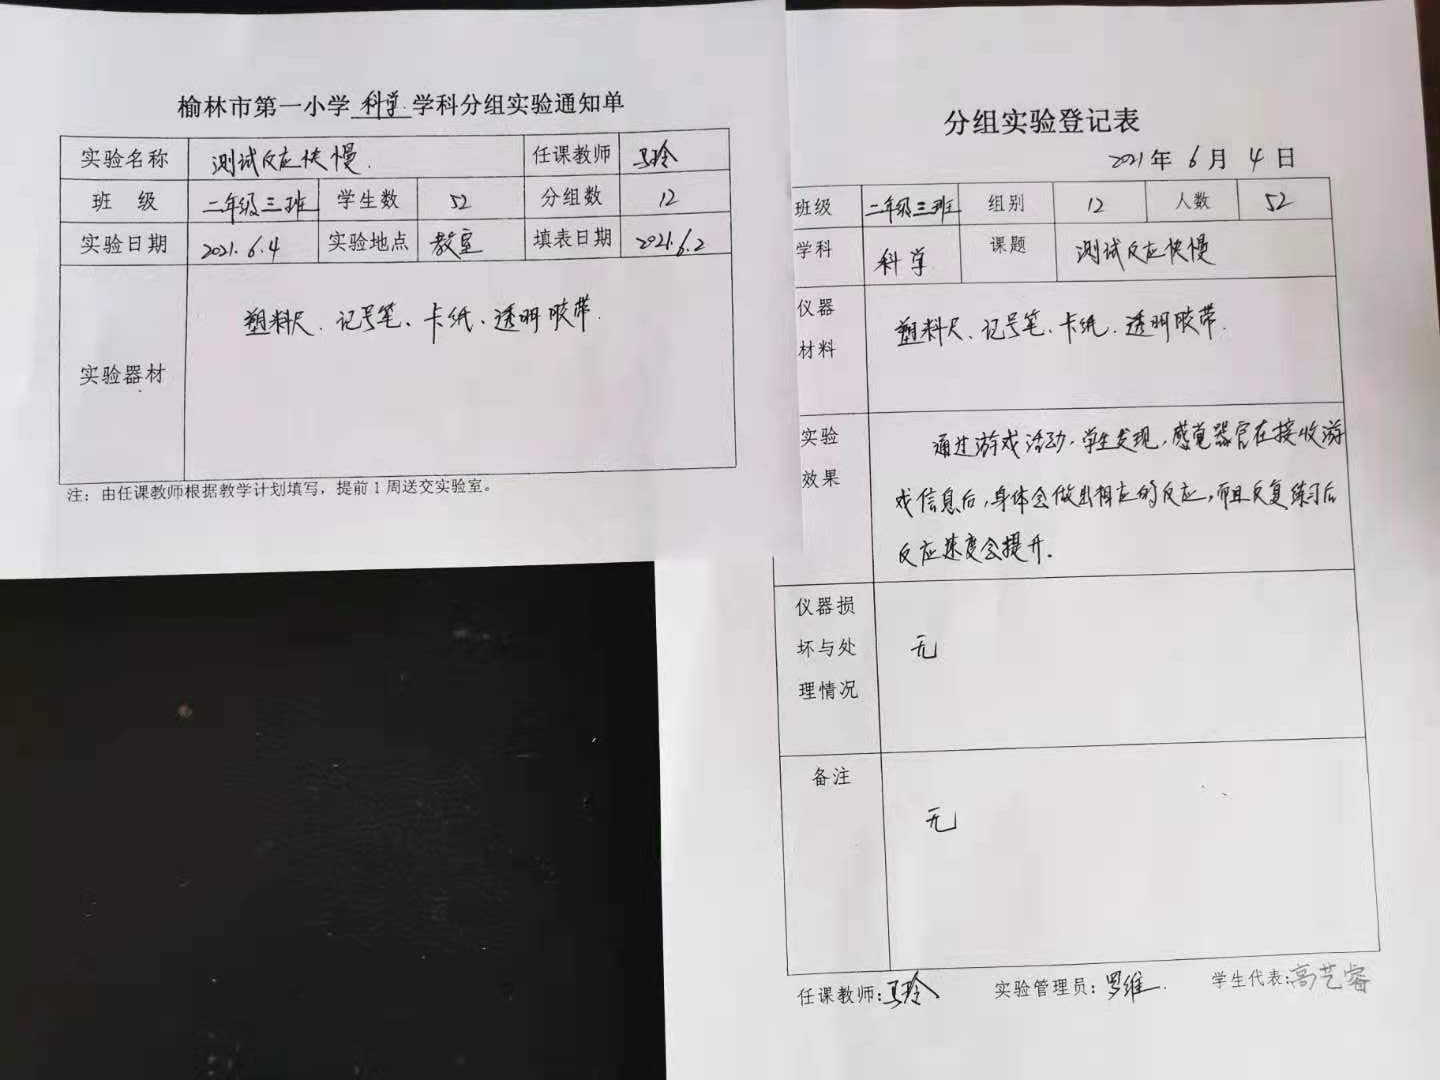 榆林市第一小学 科学 学科分组实验通知单
实验名称 测试反应快慢. 任课教师 马玲
班 级 二年级三班 学生数 52 分组数 12
实验日期 2021.6.4 实验地点 教室 填表日期 2021.6.2
实验器材 塑料尺、记号笔、卡纸、透明胶带.
注：由任课教师根据教学计划填写，提前1周送交实验室。
分组实验登记表
2021年 6月 4日
班级 二年级三班 组别 12 人数 52
学科 科学 课题 测试反应快慢
仪器
材料
塑料尺、记号笔、卡纸、透明胶带.
实验
效果
通过游戏活动，学生发现，感觉器官在接收游
戏信息后，身体会做出相应的反应，而且反复练习后
反应速度会提升.
仪器损
坏与处
理情况
无
备注
无
任课教师:马玲 实验管理员:罗维. 学生代表:高艺睿